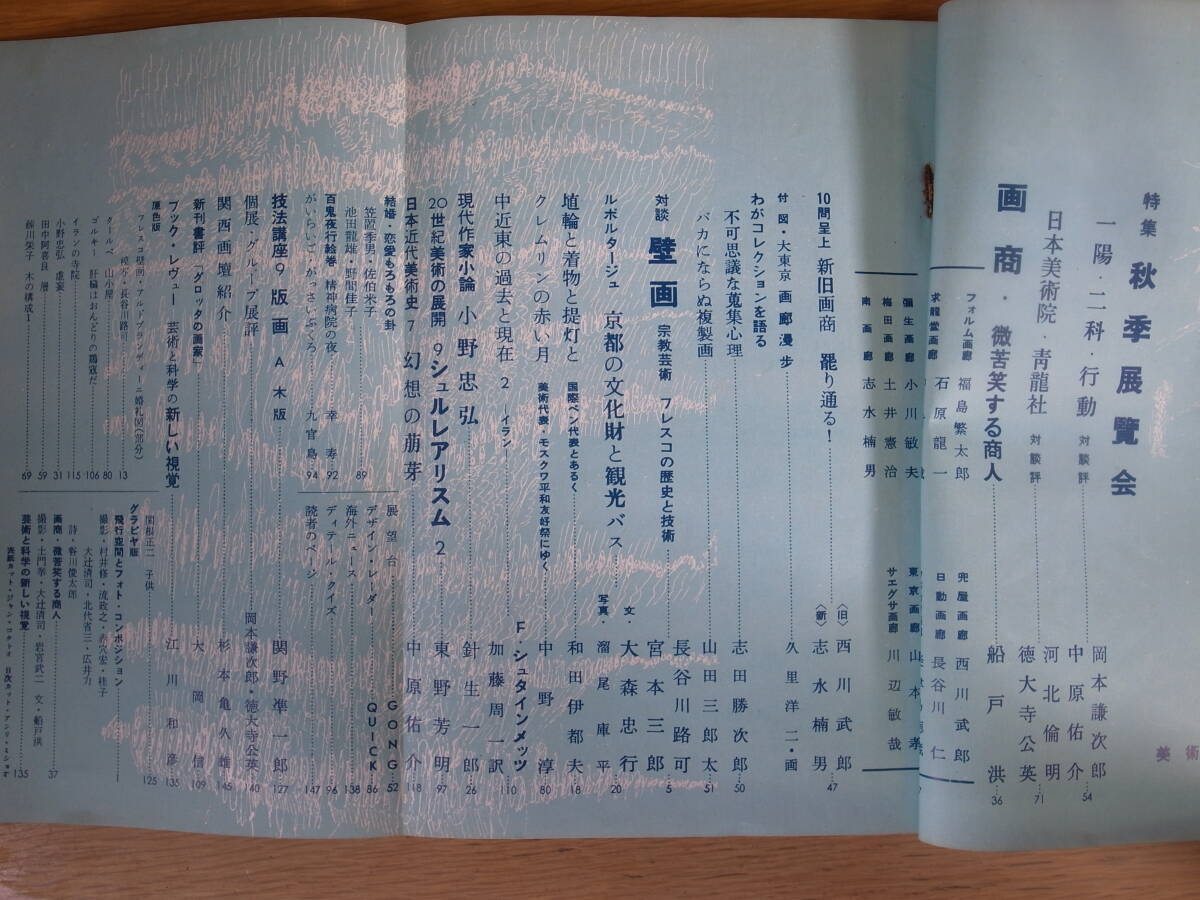 特集 秋季展覽会
一陽・二科・行動 対談評 岡本謙次郎 中原佑介 54
日本美術院・靑龍社 対談評 河北倫明 徳大寺公英 71
画商・微苦笑する商人 船戸洪 36
フォルム画廊 福島繁太郎
求龍堂画廊 石原龍一
兜屋画廊 西川武郎
日動画廊 長谷川仁
彌生画廊 小川敏夫
梅田画廊 土井憲治
南画廊 志水楠男
東京画廊 山本孝
サエグサ画廊 川辺敏哉
10問呈上 新旧画商 罷り通る! 〈旧〉西川武郎 〈新〉志水楠男 47
付図・大東京 画廊漫歩 久里洋二・画
わがコレクションを語る
不可思議な蒐集心理 志田勝次郎 50
バカにならぬ複製画 山田三郎太 51
対談 壁画 宗教芸術 フレスコの歴史と技術 長谷川路可 宮本三郎 5
ルポルタージュ 京都の文化財と観光バス 文・大森忠行 写真・溜尾庫平 20
埴輪と着物と提灯と 国際ペン代表とあるく 和田伊都夫 18
クレムリンの赤い月 美術代表・モスクワ平和友好祭にゆく 中野淳 80
中近東の過去と現在 2 イラン F・シュタインメッツ 加藤周一訳 110
現代作家小論 小野忠弘 針生一郎 26
20世紀美術の展開 9 シュルレアリスム 2 東野芳明 97
日本近代美術史 7 幻想の萠芽 中原佑介 118
結婚・恋愛もろもろの卦
笠置季男・佐伯米子
池田龍雄・野間佳子 89
百鬼夜行絵巻 精神病院の夜 幸寿 92
がいらいご・がっさいぶくろ 九官鳥 94
展望台 GONG 52
デザイン・レーダー QUICK 86
海外ニュース 138
ディテール・クイズ 96
読者のページ 147
技法講座9 版画 A 木版 関野凖一郎 127
個展・グループ展評 岡本謙次郎・徳大寺公英 140
関西画壇紹介 杉本亀久雄 145
新刊書評「グロッタの画家」 大岡信 109
ブック・レヴュー 芸術と科学の新しい視覚 江川和彦 135
原色版
フレスコ壁画・アルドブランディーニ婚礼図(部分)
模写・長谷川路可 13
タールベ 山小屋 80
ゴルキー 肝臓はおんどりの鶏冠だ 106
イランの寺院 115
小野忠弘 虚妄 31
田中阿喜良 層 59
桜川栄子 木の構成1 69
関根正二 子供 125
グラビヤ版
飛行空間とフォト・コンポジション
撮影・村井修・流政之・赤穴宏・桂子
大辻清司・北代省三・広井力
詩・谷川俊太郎
画商・微苦笑する商人 37
撮影・土門拳・大辻清司・岩宮武二 文・船戸洪
美術と科学の新しい視覚 135
表紙カット・ジャン・コクトオ 目次カット・アンリ・ミショオ
美術